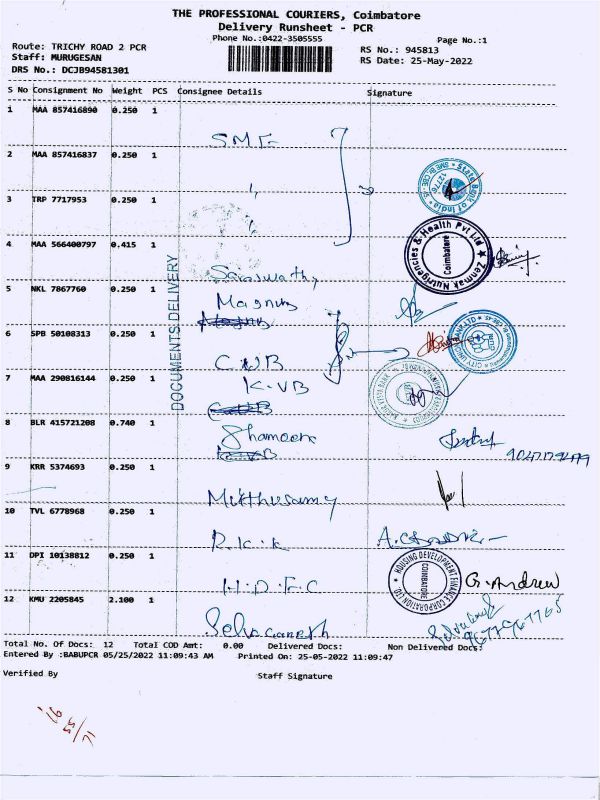 THE PROFESSIONAL COURIERS, Coimbatore
Delivery Runsheet - PCR
Phone No.:0422-3505555
Page No.:1
Route: TRICHY ROAD 2 PCR
Staff: MURUGESAN
DRS No.: DCJB94581301
RS No.: 945813
RS Date: 25-May-2022
S No Consignment No Weight PCS Consignee Details Signature
1 MAA 857416890 0.250 1
SME
2 MAA 857416837 0.250 1
"
3 TRP 7717953 0.250 1
"
4 MAA 566400797 0.415 1
Saraswathy
5 NKL 7867760 0.250 1
Magnus
6 SPB 50108313 0.250 1
CUB
7 MAA 290816144 0.250 1
K.VB
8 BLR 415721208 0.740 1
Shameena
9 KRR 5374693 0.250 1
Mikthusamy
10 TVL 6778968 0.250 1
R.K.K
11 DPI 10138812 0.250 1
H.D.F.C
G. Andrew
12 KMU 2205845 2.100 1
Selvaganesh
DOCUMENTS DELIVERY
State Bank of India
12776
Zenmak Nutrigencies & Health Pvt Ltd
Coimbatore
HOUSING DEVELOPMENT FINANCE CORPORATION LTD
COIMBATORE
Total No. Of Docs: 12 Total COD Amt: 0.00 Delivered Docs: Non Delivered Docs:
Entered By :BABUPCR 05/25/2022 11:09:43 AM Printed On: 25-05-2022 11:09:47
Verified By Staff Signature